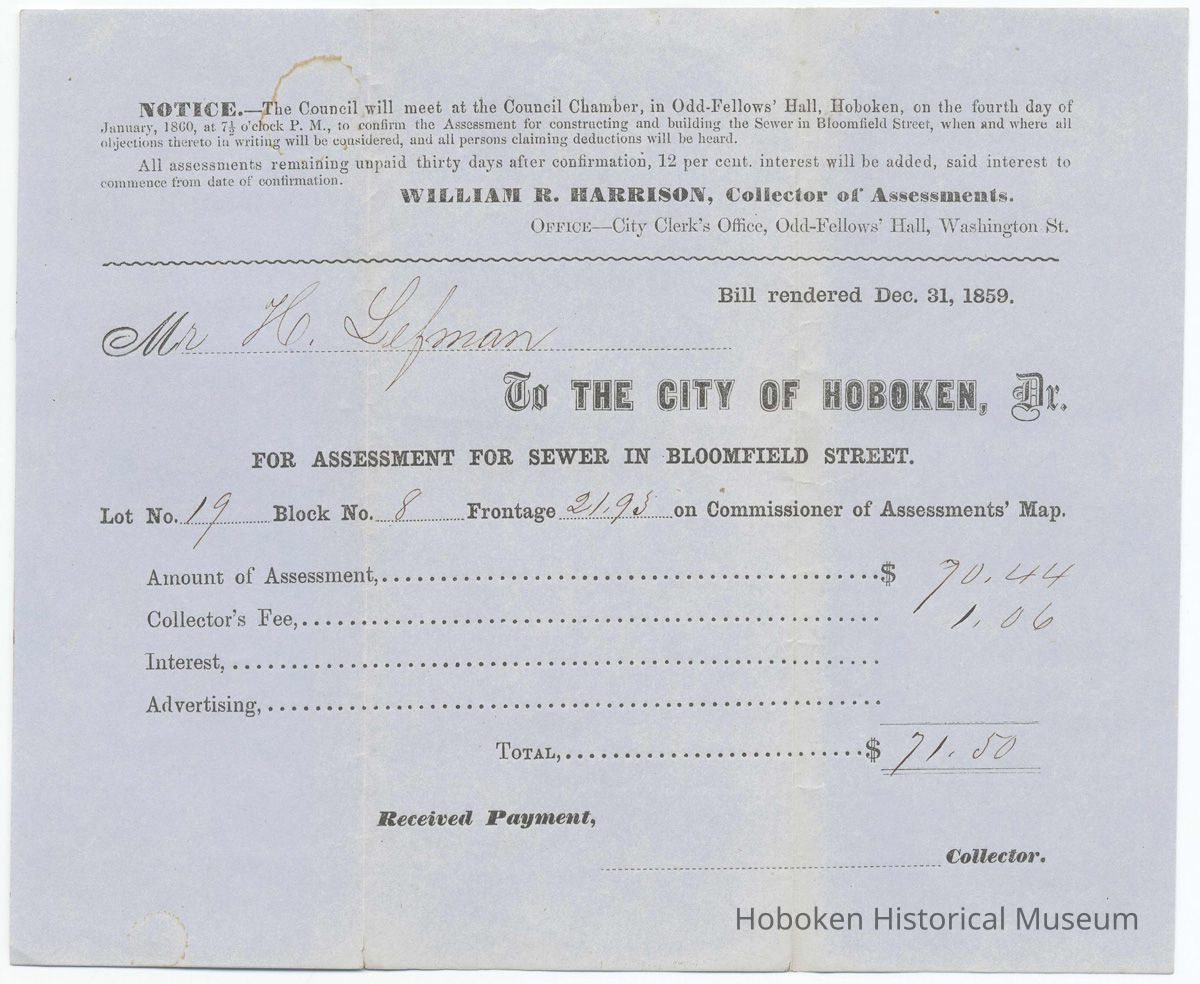 NOTICE.—The Council will meet at the Council Chamber, in Odd-Fellows' Hall, Hoboken, on the fourth day of
January, 1860, at 7½ o'clock P. M., to confirm the Assessment for constructing and building the Sewer in Bloomfield Street, when and where all
objections thereto in writing will be considered, and all persons claiming deductions will be heard.
All assessments remaining unpaid thirty days after confirmation, 12 per cent. interest will be added, said interest to
commence from date of confirmation.
WILLIAM R. HARRISON, Collector of Assessments.
OFFICE—City Clerk's Office, Odd-Fellows' Hall, Washington St.
Bill rendered Dec. 31, 1859.
Mr H. Lefman
To THE CITY OF HOBOKEN, Dr.
FOR ASSESSMENT FOR SEWER IN BLOOMFIELD STREET.
Lot No. 19 Block No. 8 Frontage 21.95 on Commissioner of Assessments' Map.
Amount of Assessment, $ 70.44
Collector's Fee, 1.06
Interest,
Advertising,
TOTAL, $ 71.50
Received Payment,
Collector.
Hoboken Historical Museum